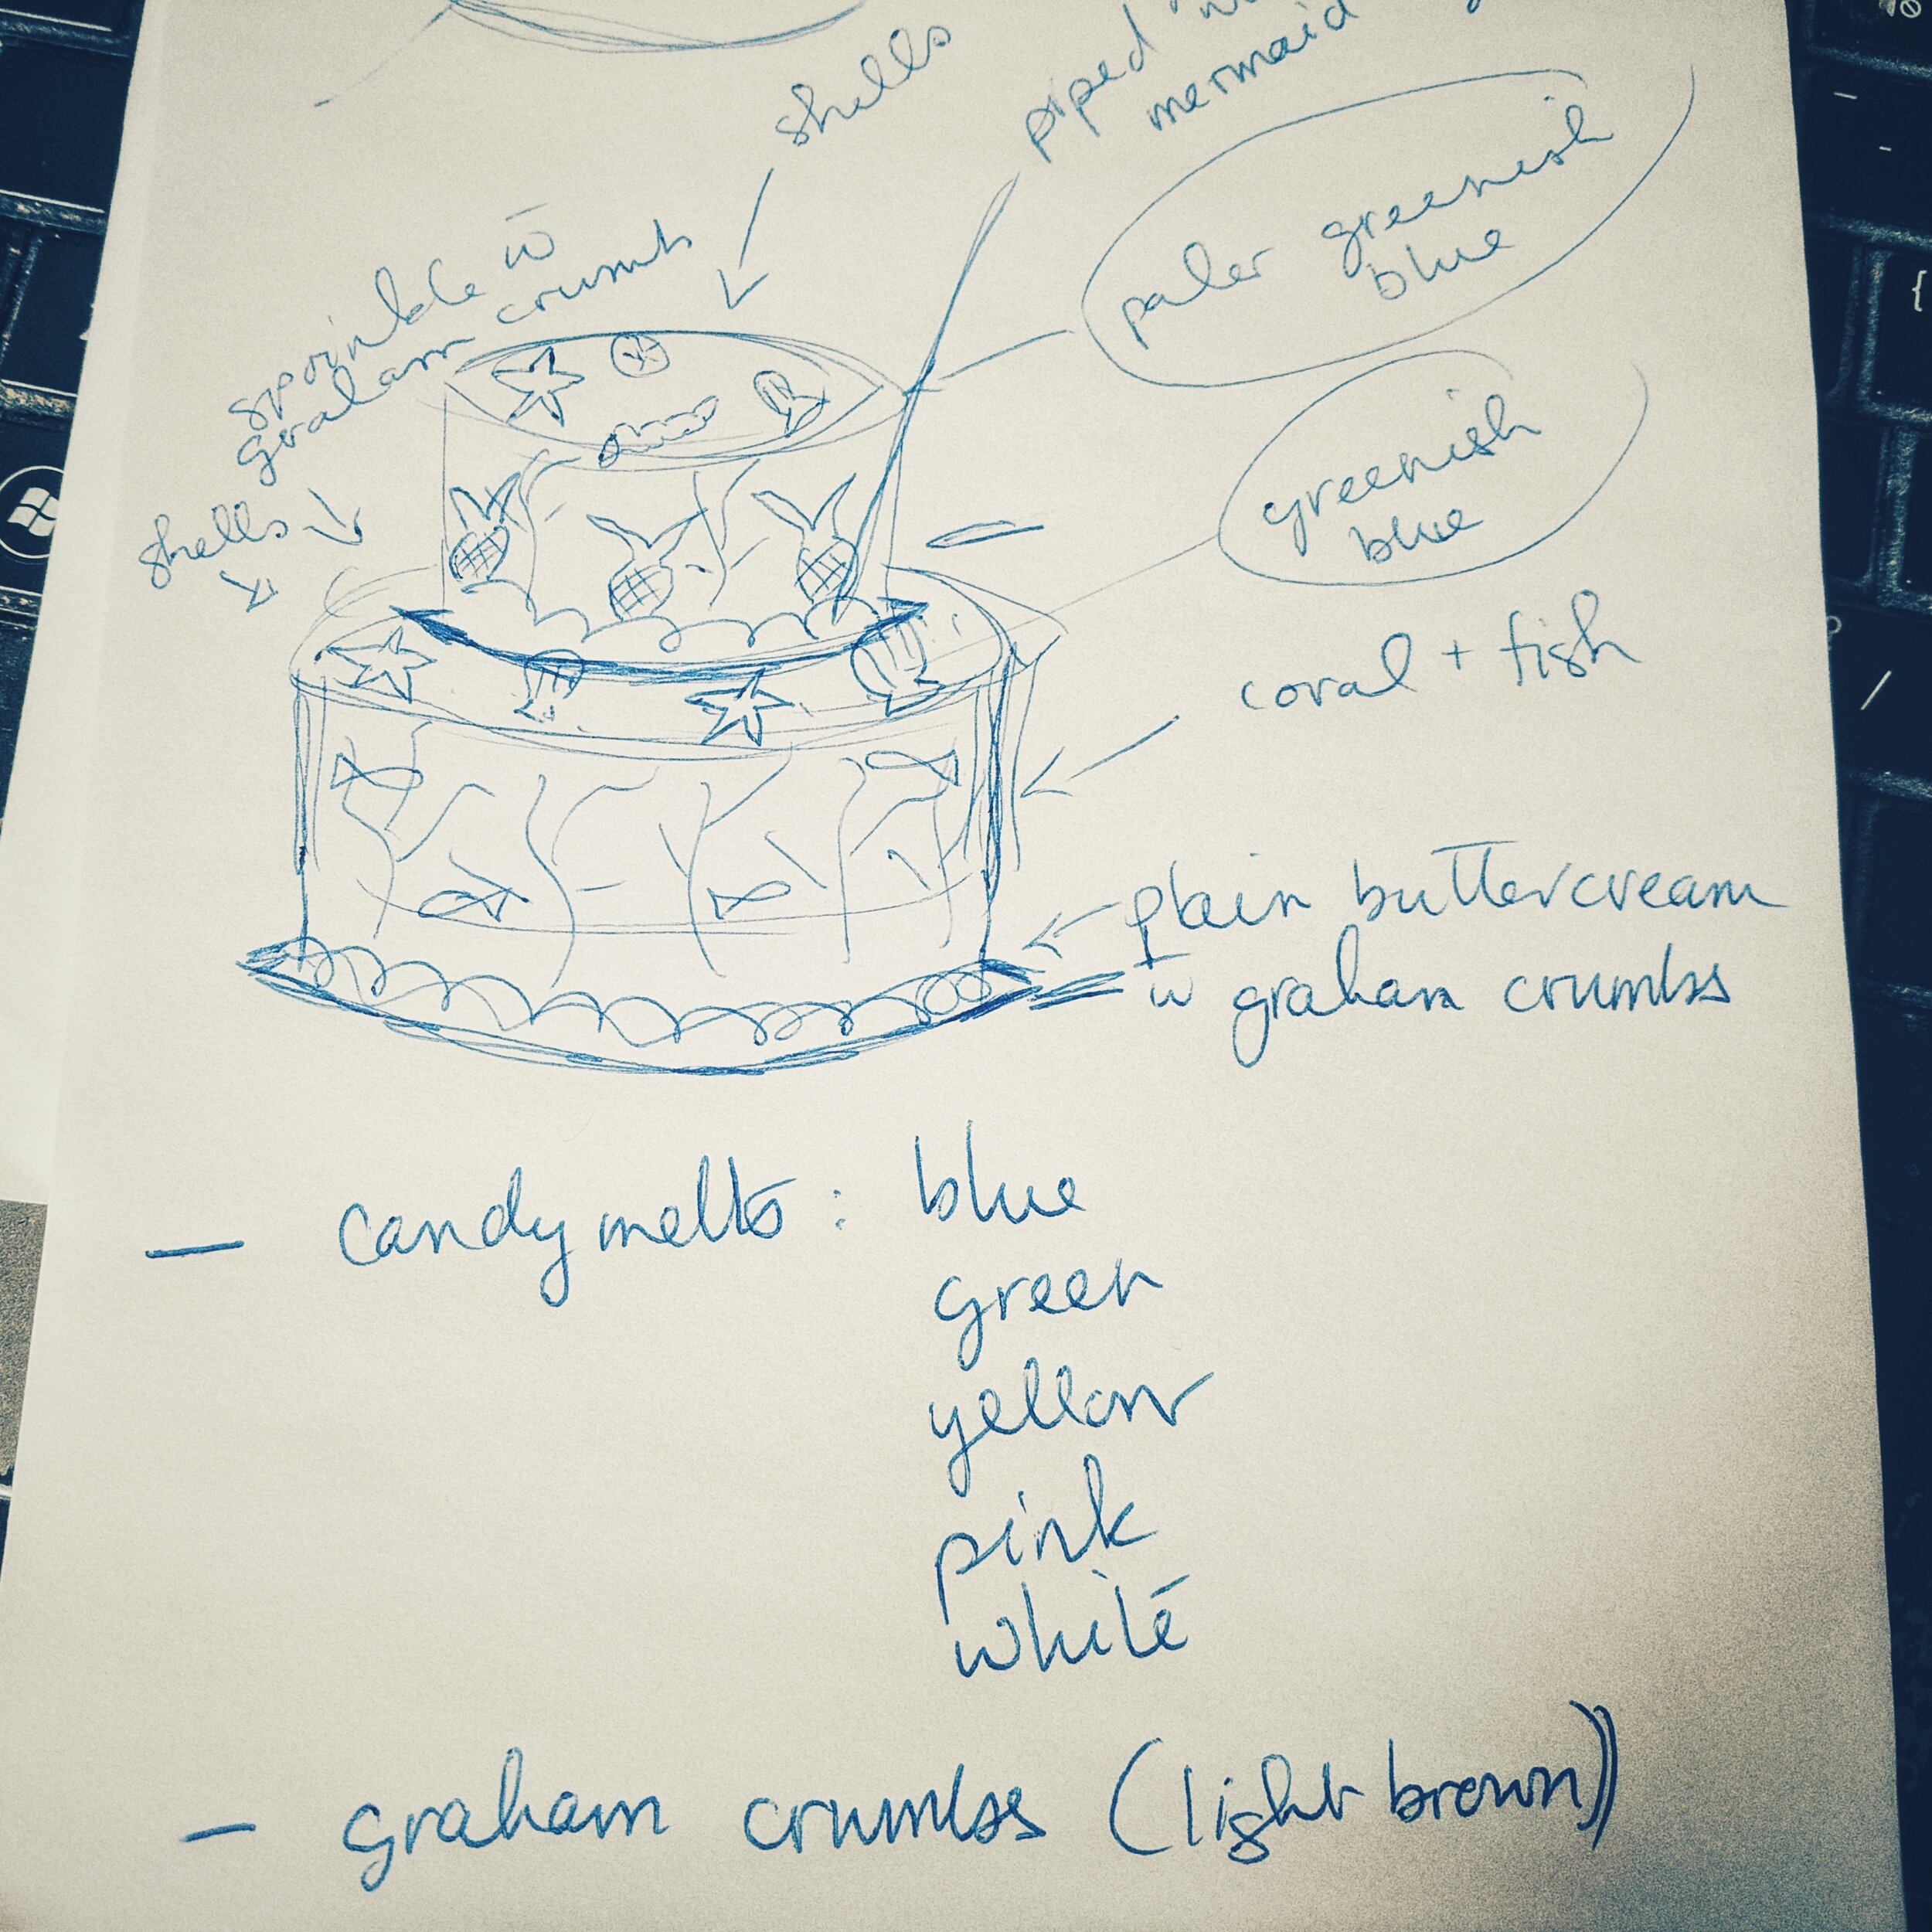 shells
piped
mermaid
sprinkle w̄
graham crumbs
paler greenish
blue
shells
greenish
blue
coral + fish
plain buttercream
w̄ graham crumbs
— candy melts : blue
green
yellow
pink
white
— graham crumbs (light brown)